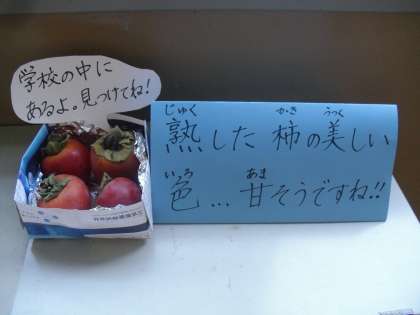 学校の中に
あるよ。見つけてね!
じゅく かき うつく
熟した柿の美しい
いろ あま
色…甘そうですね!!